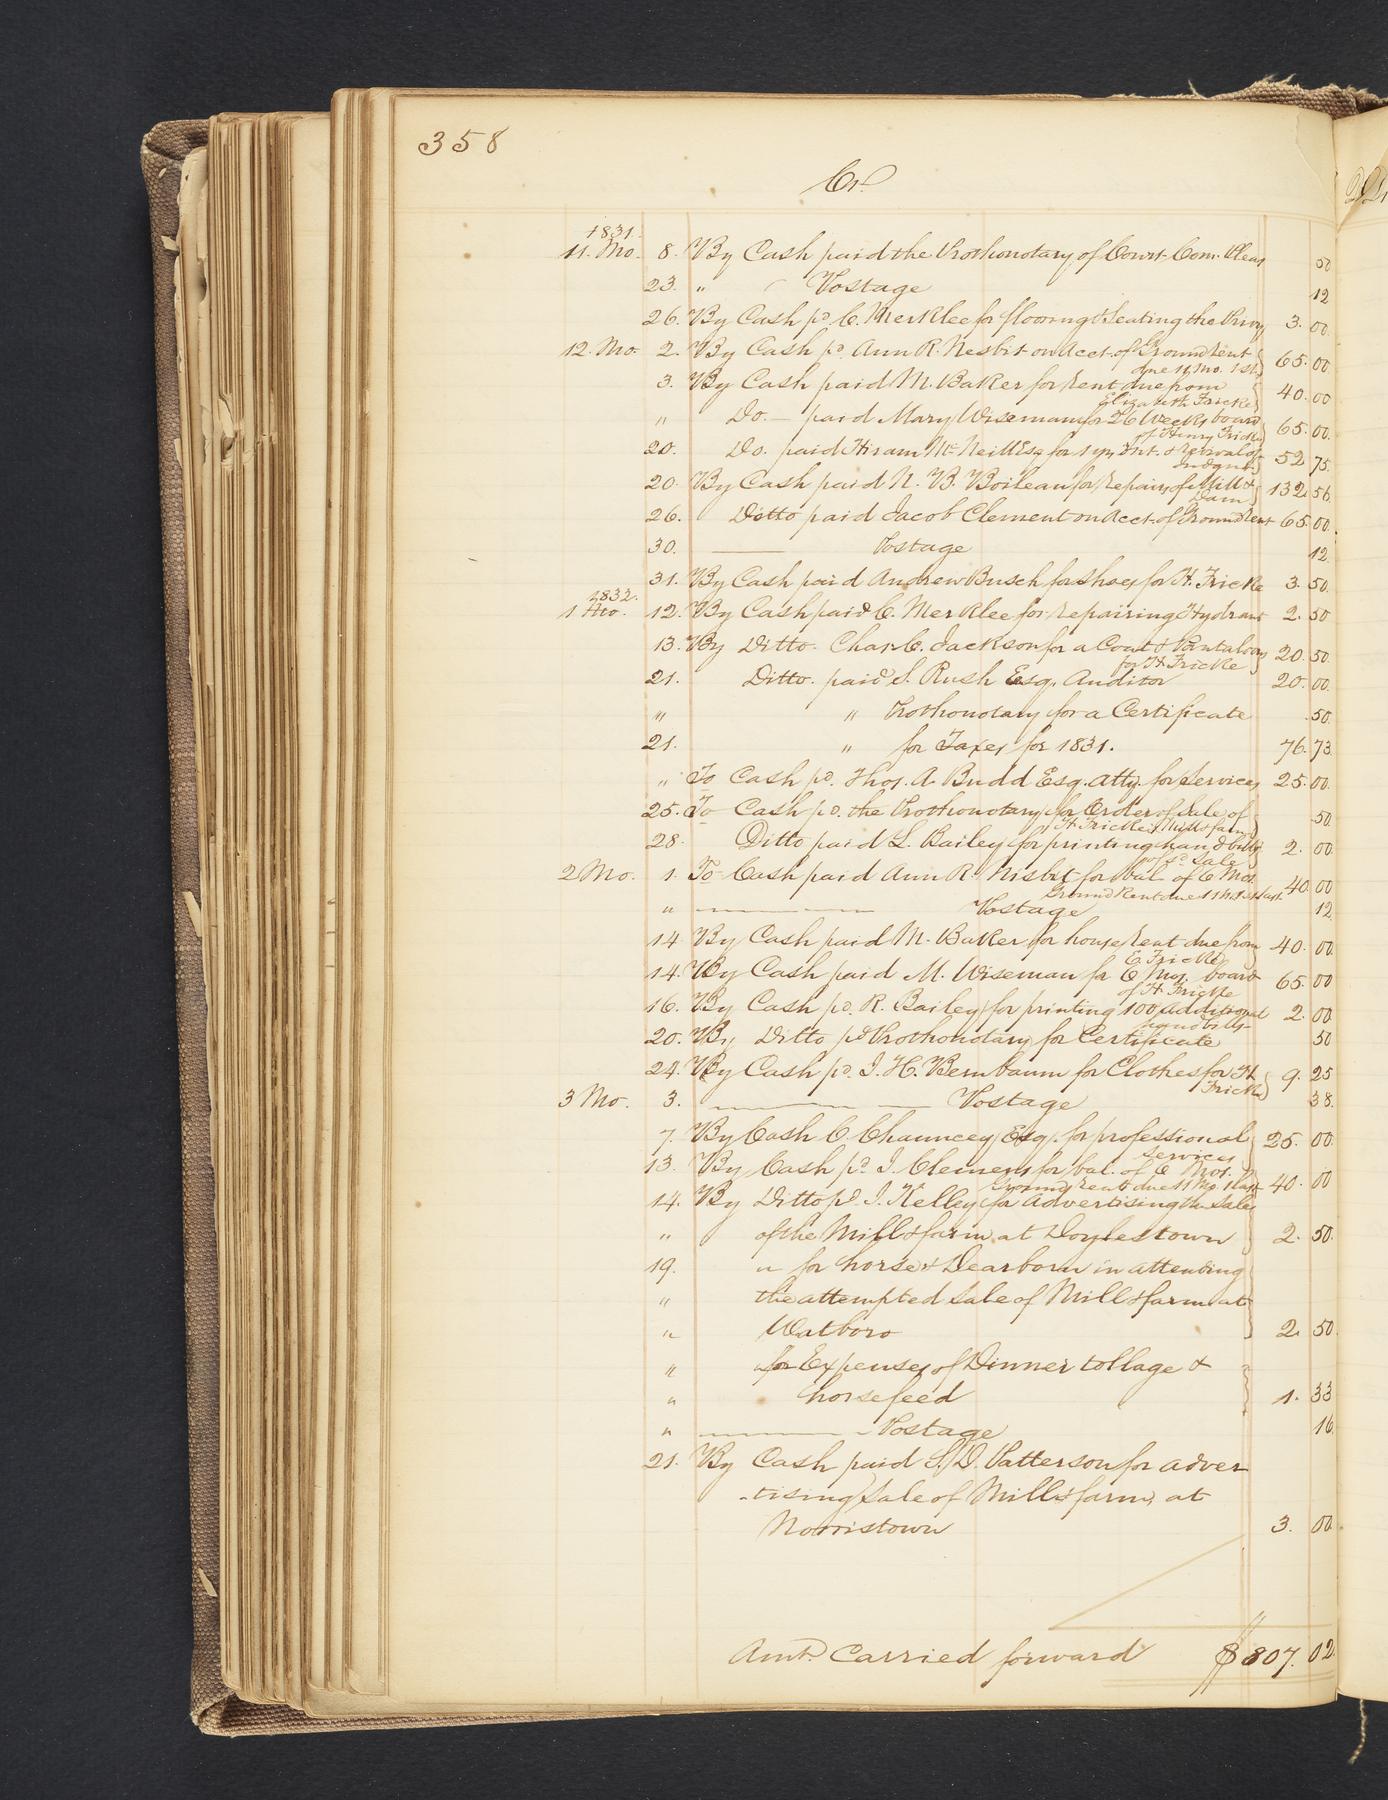 358
Cr.
1831.
11. Mo. 8. By Cash paid the Prothonotary of Court Com. Pleas 50
23. " " Postage 12
26. By Cash pd. C. Merklee for flooring & Seating the Privy 3. 00
12. Mo. 2. By Cash pd. Ann R. Nesbit on Acct. of Ground Rent
due 11. Mo. 1st. 65. 00
3. By Cash paid M. Baker for Rent due from
Elizabeth Fricke 40. 00
" Do. — paid Mary Wiseman for 26 Weeks board
of Henry Fricke 65. 00.
20. Do. paid Hiram McNeill Esq for Int. & revival of
Judgmt. 52 75.
20. By Cash paid N. B. Boileau for Repairs of Mill &
Dam 132. 56
26. Ditto paid Jacob Clement on Acct. of Ground Rent 65. 00.
30. Postage 12.
31. By Cash paid Andrew Busch for Shoes for H. Fricke 3. 50.
1832.
1 Mo. 12. By Cash paid C. Merklee for repairing Hydrant 2. 50
13. By Ditto. Chas. C. Jackson for a Coat & Pantaloons
for H Fricke 20. 50.
21. Ditto. paid S. Rush Esq. Auditor 20. 00.
" " Prothonotary for a Certificate .50.
21. " for Taxes for 1831. 76. 73.
" To Cash pd. Thos. A. Budd Esq. atty. for Services 25. 00.
25. To Cash pd. the Prothonotary for Order of Sale of
H Fricke's Mill & farm 50.
28. Ditto paid L. Bailey for printing hand bills
of sd. Sale 2. 00.
2 Mo. 1. To Cash paid Ann R. Nisbit for bal. of 6 Mos.
Ground Rent due 11 Mo 1st last. 40. 00
" Postage 12.
14 By Cash paid M. Baker for house Rent due from
E. Fricke 40. 00.
14. By Cash paid M. Wiseman for 6 Mos. board
of H. Fricke 65. 00
16. By Cash pd. R. Bailey for printing 100 additional
hand bills 2. 00.
20. By Ditto pd Prothonotary for Certificate 50
24. By Cash pd. I. H. Bernbaum for Clothes for H.
Fricke 9. 25
3 Mo. 3. Postage 38.
7. By Cash C Chauncey Esq. for professional
Services 25. 00.
13. By Cash pd. I. Clemens for bal. of 6 Mos.
Ground rent due 11 Mo 1 last 40. 00
14. By Ditto pd. I. Kelley for Advertising the Sale
" of the Mill & farm at Doylestown 2. 50.
19. " for horse & Dearborn in attending
" the attempted Sale of Mill & farm at
" Hatboro 2. 50.
" for Expenses of Dinner tollage &
" horse feed 1. 33
" Postage 16
21. By Cash paid S. D. Patterson for adver
-tising Sale of Mill & farm, at
Norristown 3. 00
Amt. Carried forward $807. 02.